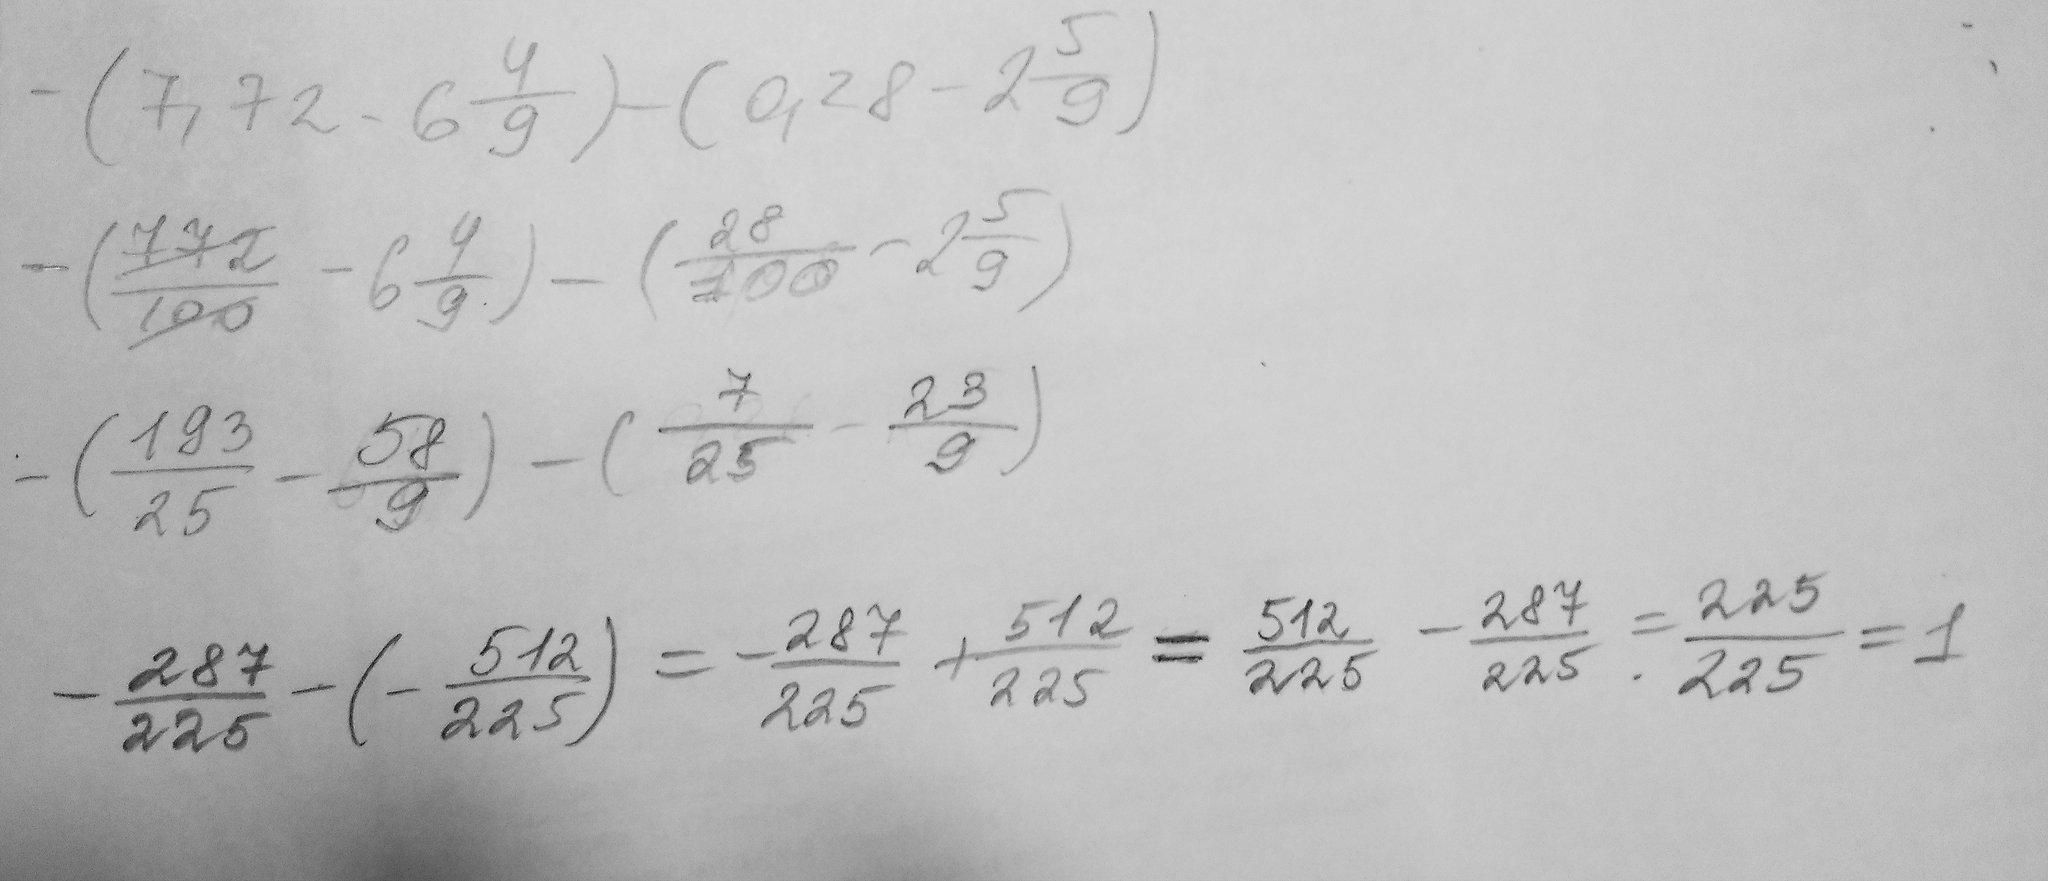 -(7,72-6 4/9)-(0,28-2 5/9)
-(772/100-6 4/9)-(28/100-2 5/9)
-(193/25-58/9)-(7/25-23/9)
-287/225-(-512/225)=-287/225+512/225=512/225-287/225=225/225=1